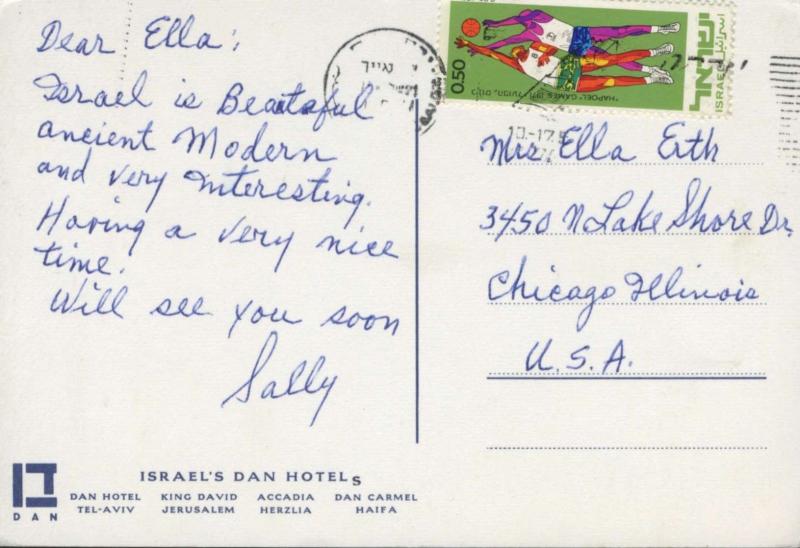 Dear Ella:
Israel is Beautaful
ancient Modern
and very Interesting.
Having a very nice
time.
Will see you soon
Sally
0.50
"HAPOEL" GAMES 1971
ISRAEL
ישראל
اسرائيل
10.-17.5
Mrs Ella Erth
3450 N Lake Shore Dr.
Chicago Illinois
U.S.A.
DAN
ISRAEL'S DAN HOTELS
DAN HOTEL KING DAVID ACCADIA DAN CARMEL
TEL-AVIV JERUSALEM HERZLIA HAIFA